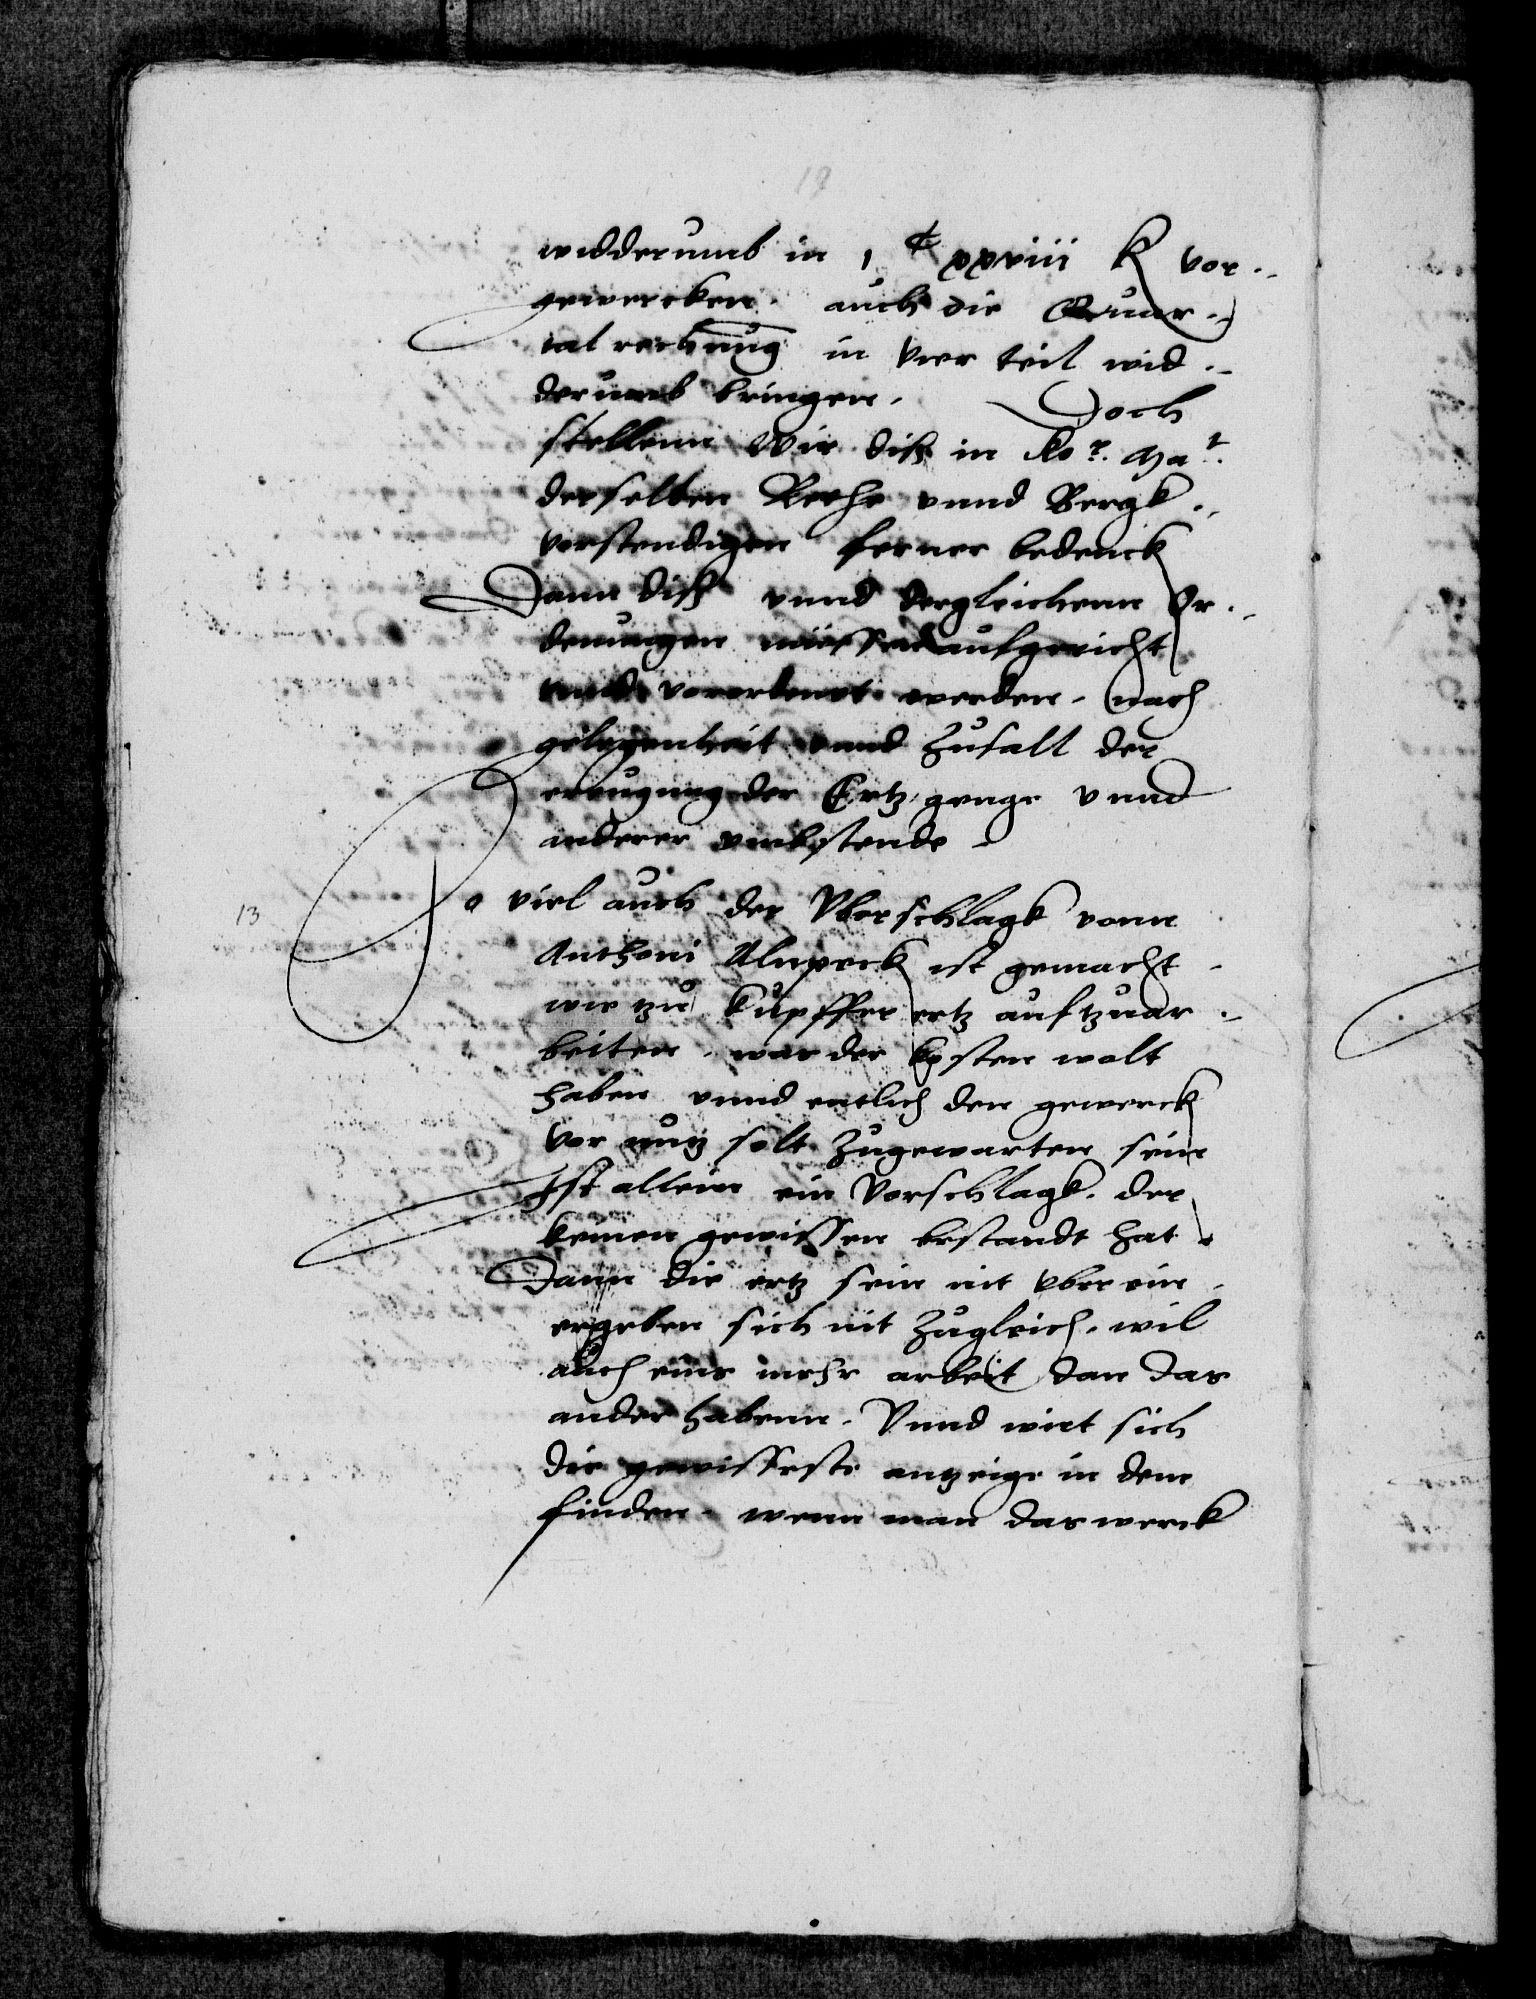 18
widderumb in 1 C xxviii K vor¬
gewercken. auch die Quar¬
tal rechnug in vier teil wid¬
derumb bringen. Doch
stellenn Wir diß in Ko r. Ma t.
derselben Rethe vnnd Bergk¬
verstendigen ferner bedenck
Dann diß vnnd dergleichenn Or¬
denungen müessen aufgericht
vnnd verordent werden. nach
gelegenheit vnnd Zufall der
ereugung der Ertz genge vnnd
anderer vmbstende
13
So viel auch der Vberschlagk vonn
Anthoni Alnpeck ist gemacht
wie tzu kupffer ertz auftzuar¬
beiten. was der kosten wolt
haben vnnd entlich den gewerck
vor nutz solt Zugewarten sein
Ist allein ein Vorschlagk. der
keinen gewissen bestandt hat
Dann die ertz sein nit vber ein
ergeben sich nit Zugleich. wil
auch eins mehr arbeit dan das
ander habenn. Vnnd wirt sich
die gewisseste antzeige in dem
finden. wenn man das werck